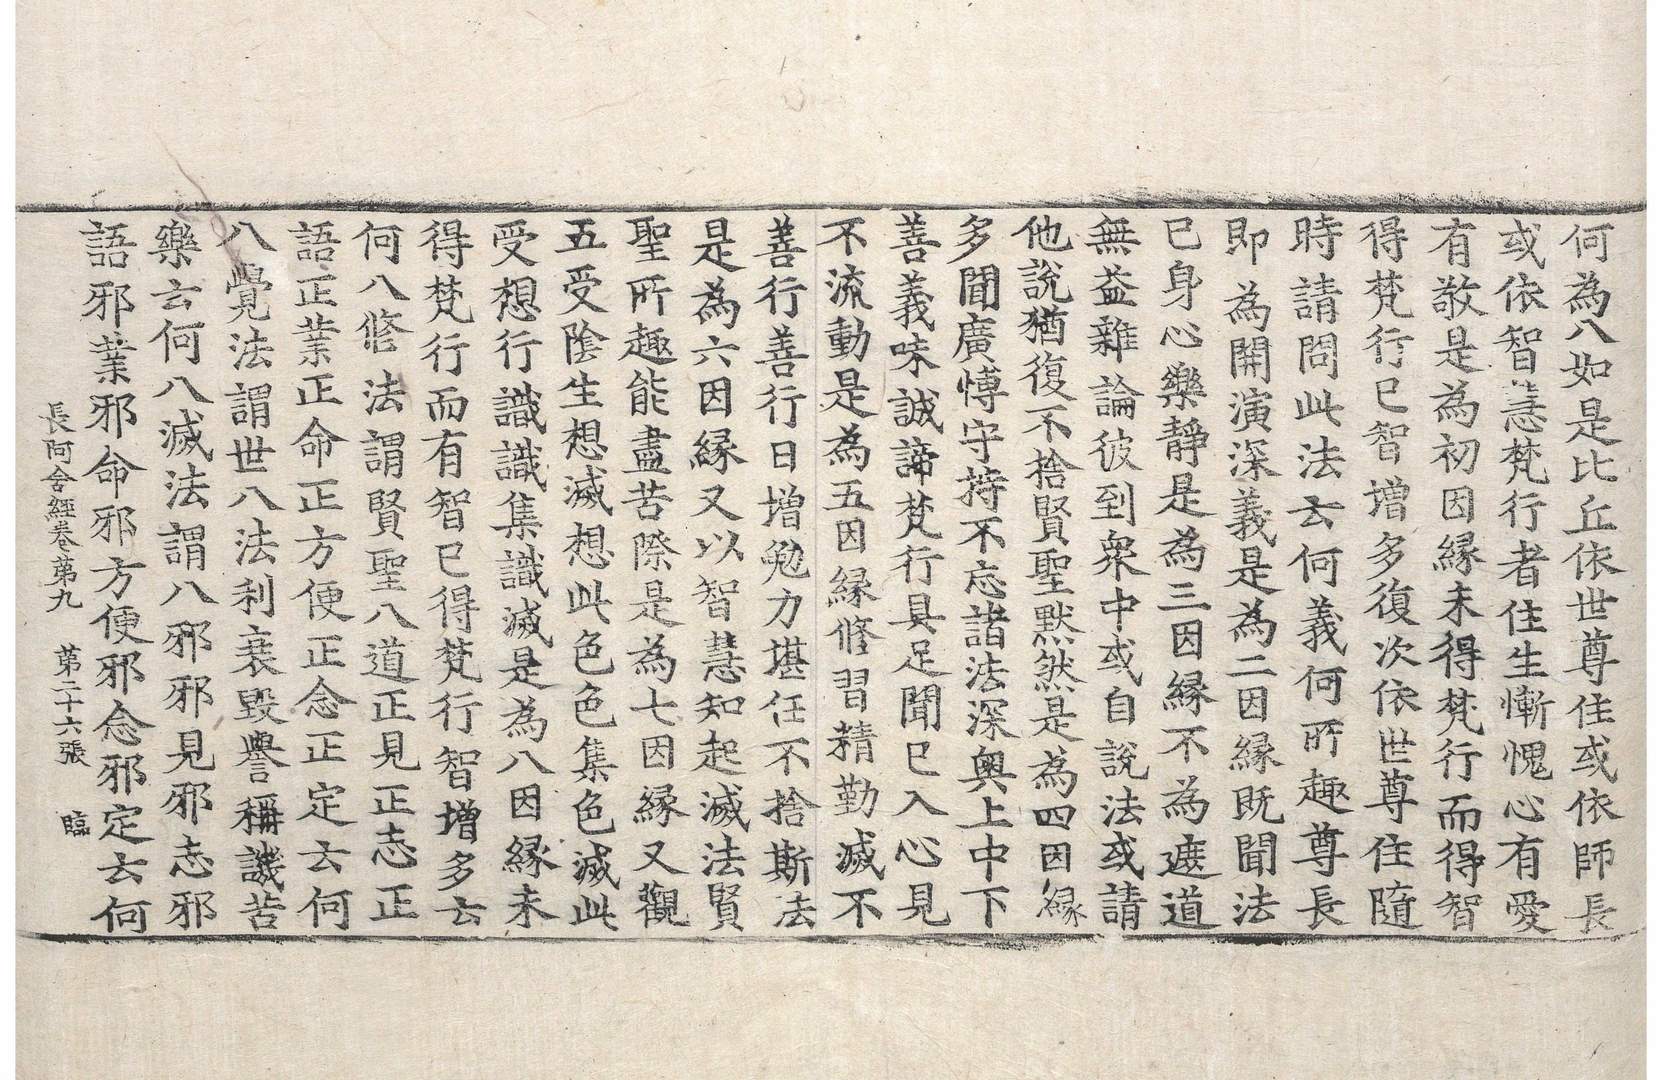 何為八如是比丘依世尊住或依師長
或依智慧梵行者住生慚愧心有愛
有敬是為初因緣未得梵行而得智
得梵行已智增多復次依世尊住隨
時請問此法云何義何所趣尊長
即為開演深義是為二因緣既聞法
已身心樂靜是為三因緣不為遮道
無益雜論彼到衆中或自說法或請
他說猶復不捨賢聖默然是為四因緣
多聞廣博守持不忘諸法深奧上中下
善義味誠諦梵行具足聞已入心見
不流動是為五因緣修習精勤滅不
善行善行日增勉力堪任不捨斯法
是為六因緣又以智慧知起滅法賢
聖所趣能盡苦際是為七因緣又觀
五受陰生想滅想此色色集色滅此
受想行識識集識滅是為八因緣未
得梵行而有智已得梵行智增多云
何八修法謂賢聖八道正見正志正
語正業正命正方便正念正定云何
八覺法謂世八法利衰毀譽稱譏苦
樂云何八滅法謂八邪邪見邪志邪
語邪業邪命邪方便邪念邪定云何
長阿含經卷第九 第二十六張 臨